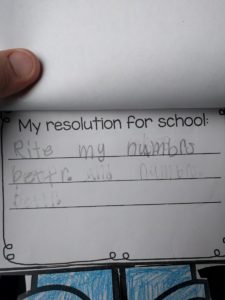 My resolution for school:
Rite my numbrs
bettr. numbr